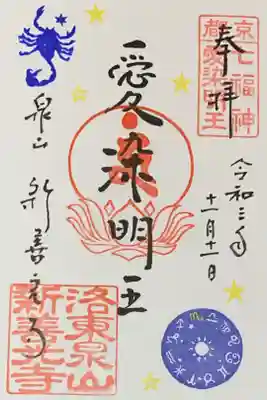 奉拝
京
都
七福神
愛染明王
令和三年
十一月十一日
愛染明王
泉山 新善光寺
洛東泉山
新善光寺